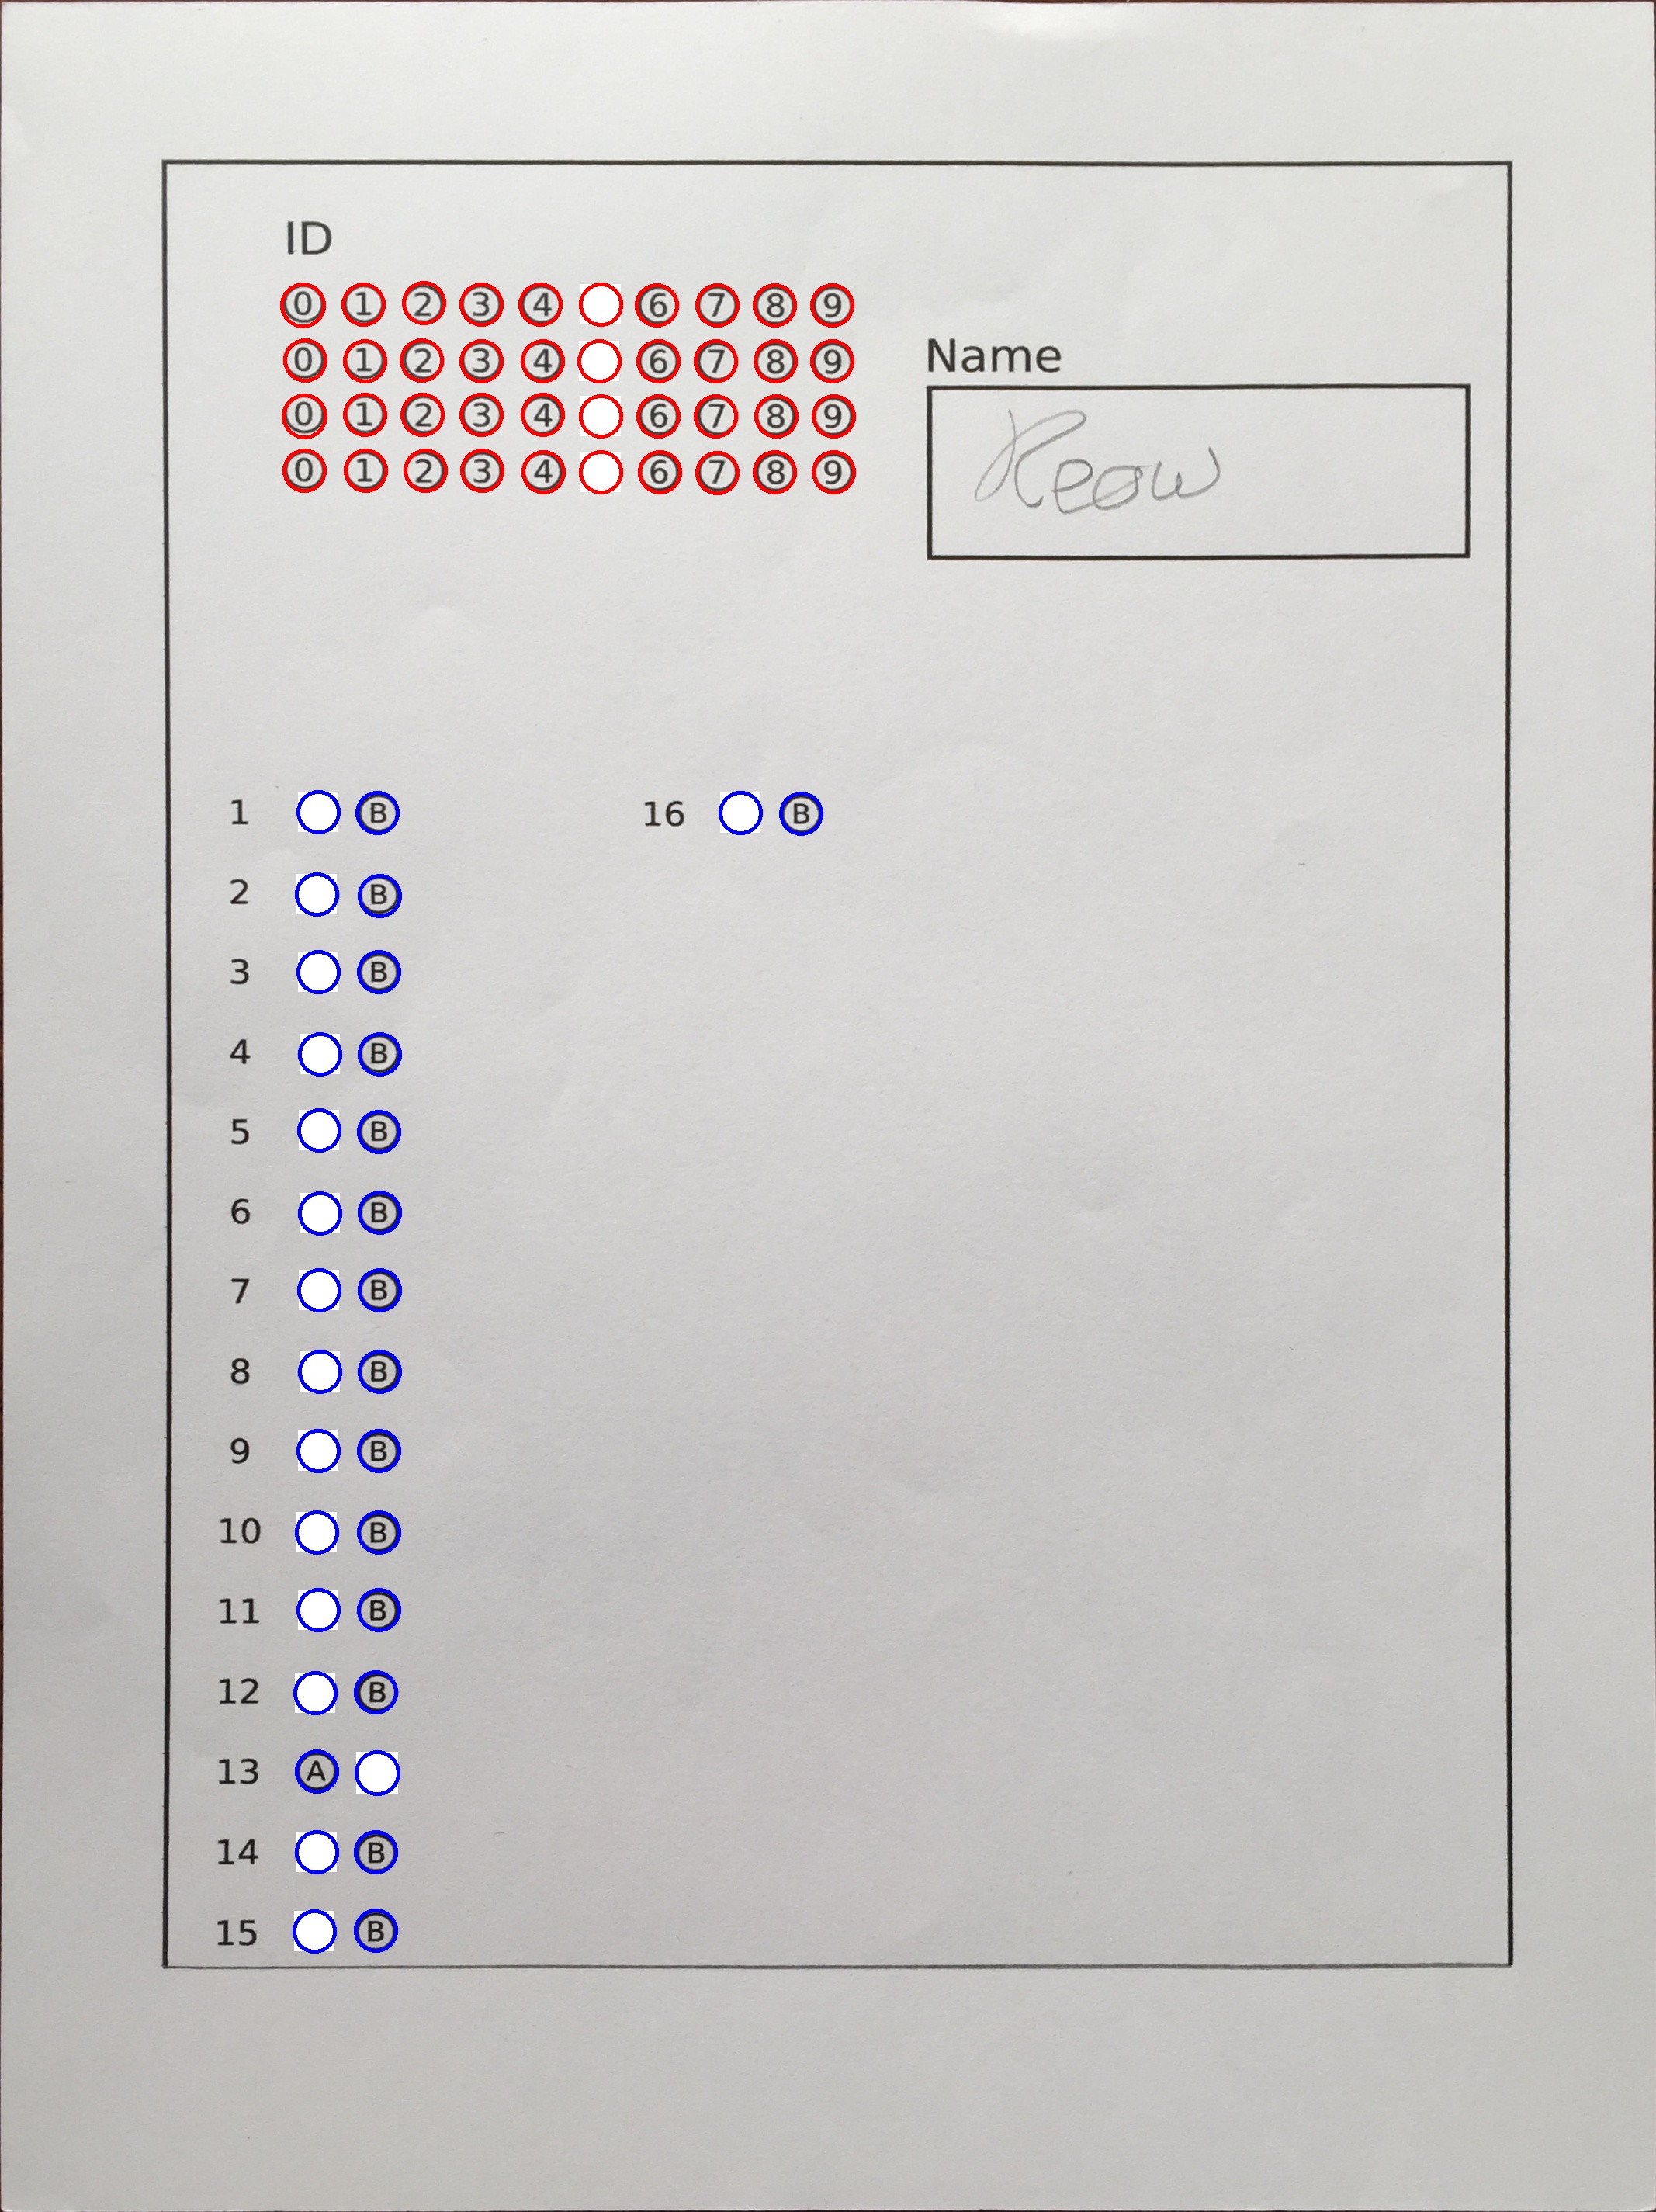 ID
0 1 2 3 4 6 7 8 9
0 1 2 3 4 6 7 8 9
0 1 2 3 4 6 7 8 9
0 1 2 3 4 6 7 8 9
Name
1 B
2 B
3 B
4 B
5 B
6 B
7 B
8 B
9 B
10 B
11 B
12 B
13 A
14 B
15 B
16 B